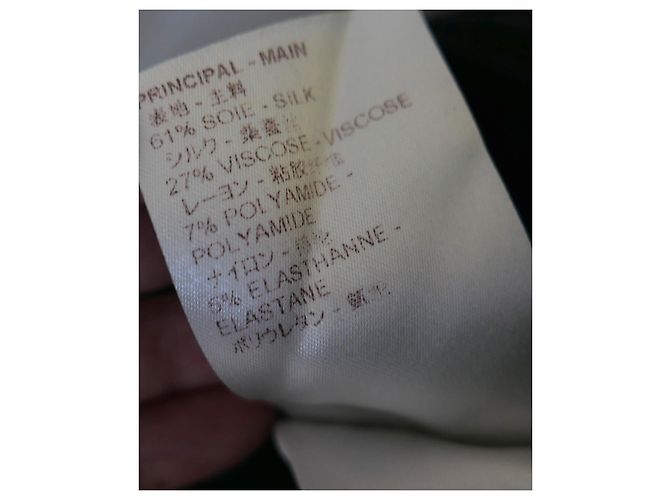 PRINCIPAL - MAIN
表地 - 主料
61% SOIE - SILK
シルク - 桑蚕丝
27% VISCOSE - VISCOSE
レーヨン - 粘胶纤维
7% POLYAMIDE -
POLYAMIDE
ナイロン -
6% ELASTHANNE -
ELASTANE
ポリウレタン -